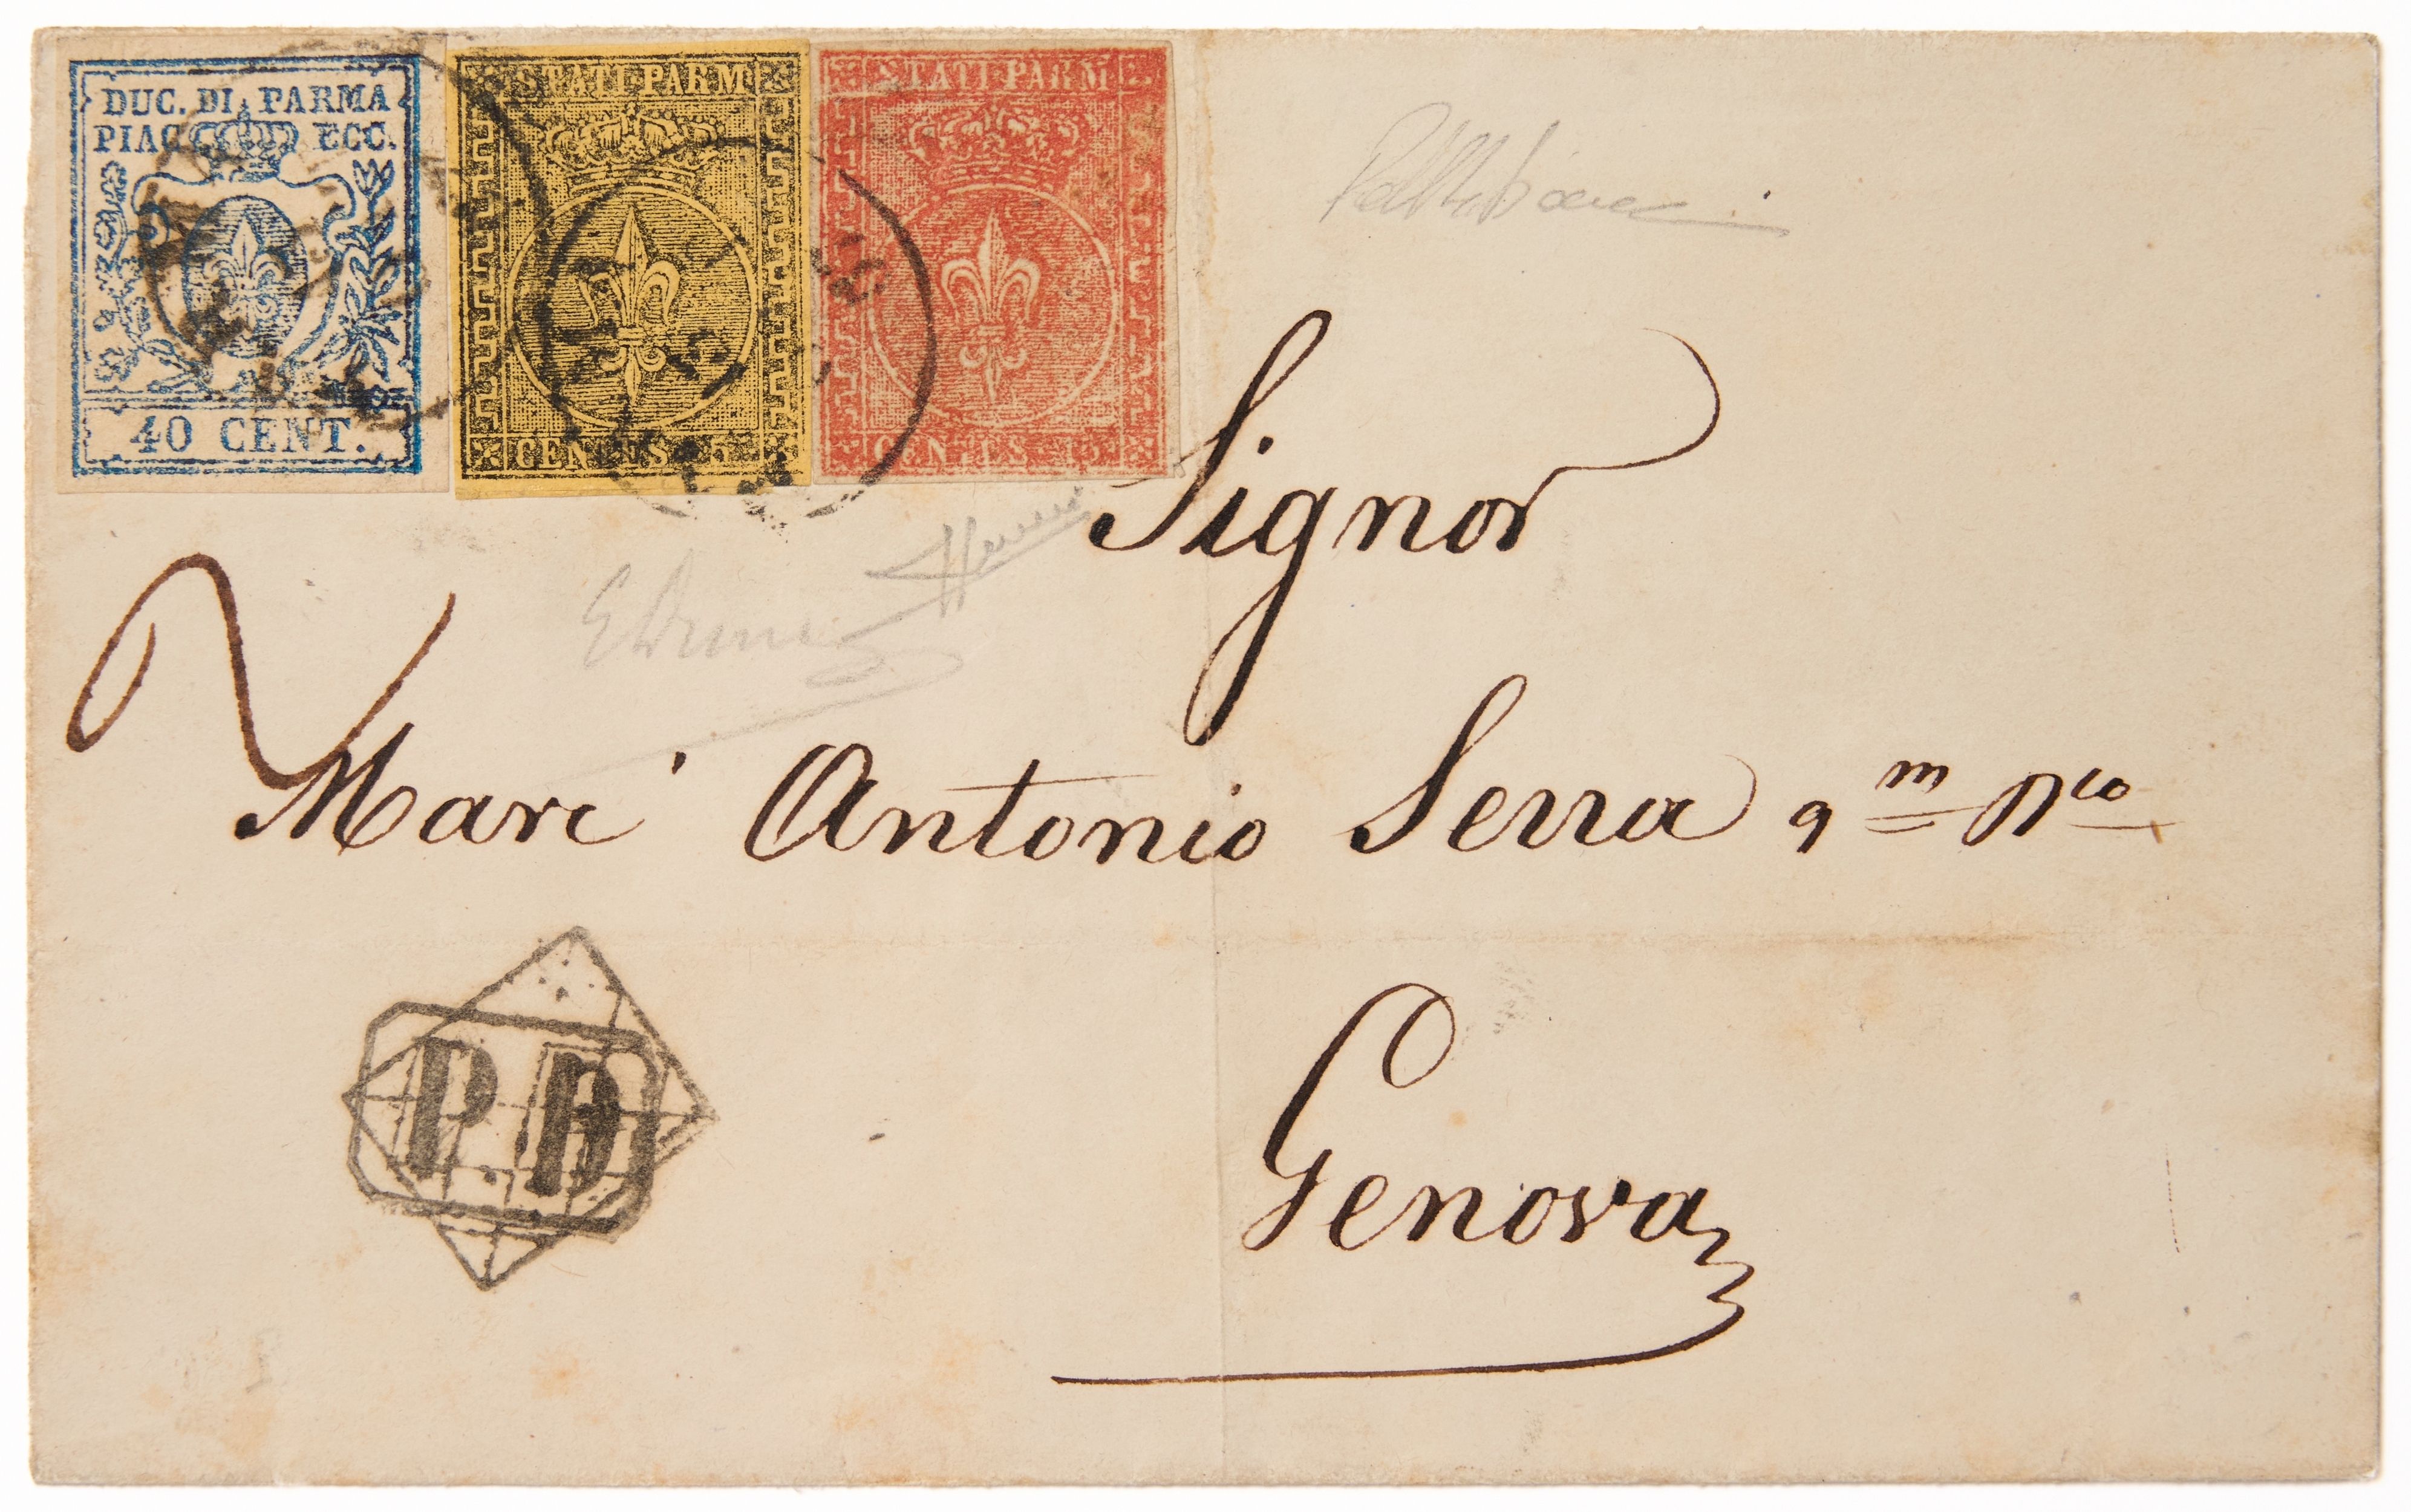 DUC. DI PARMA
PIAC ECC.
40 CENT.
STATI PARM
CENTES 5
STATI PARM
CENTES 15
Signor
Marc' Antonio Serra qm
Genova
PD